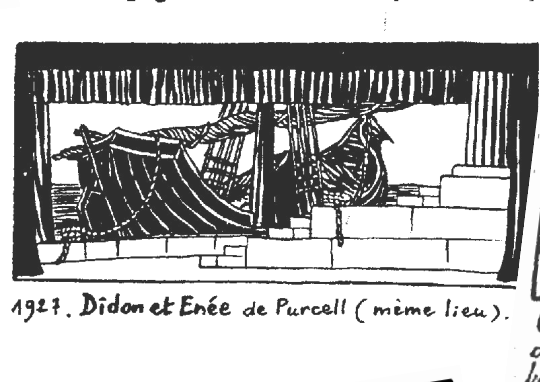 1927. Didon et Enée de Purcell (même lieu).